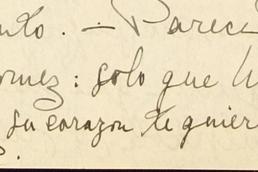 nto. — Parec
omez: solo que U
su corazon te quier
s.